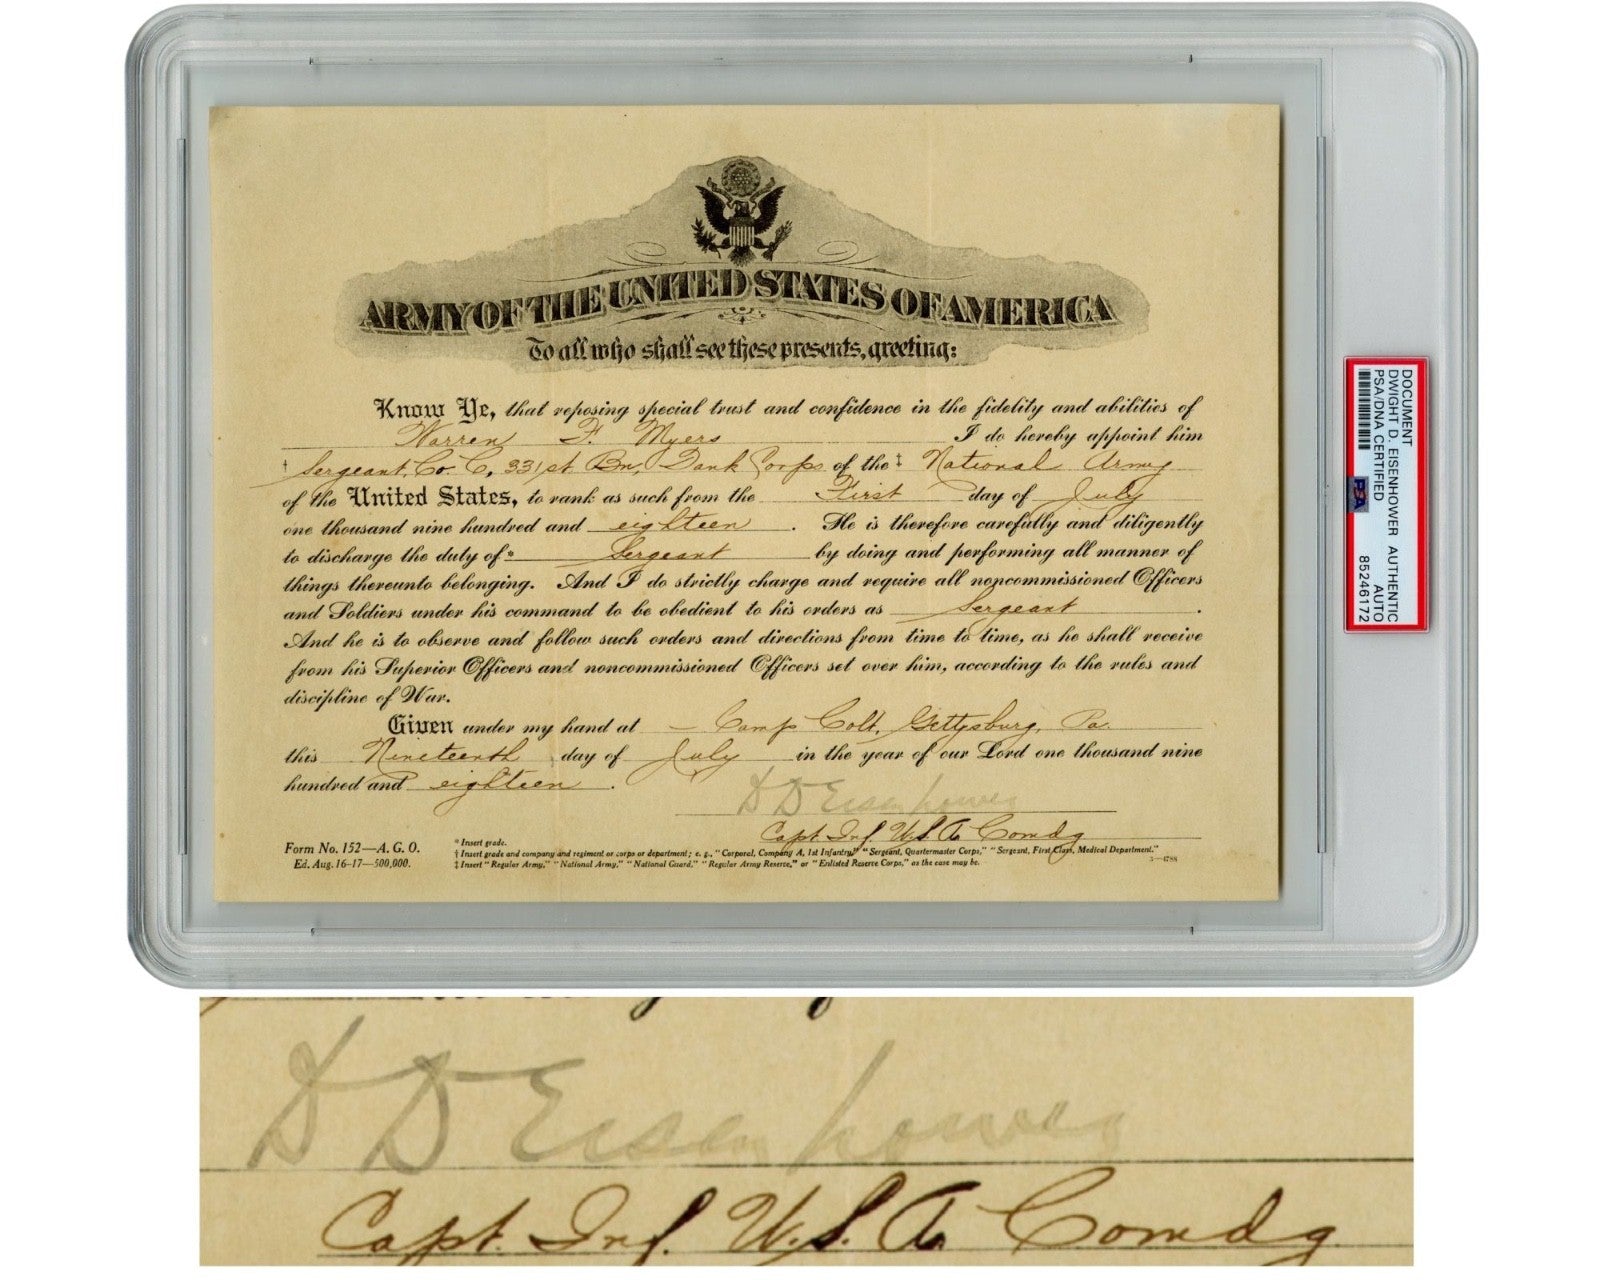 ARMY OF THE UNITED STATES OF AMERICA
To all who shall see these presents, greeting:
Know Ye, that reposing special trust and confidence in the fidelity and abilities of
Warren F. Myers I do hereby appoint him
† Sergeant, Co. C, 331st Bn, Tank Corps of the ‡ National Army
of the United States, to rank as such from the First day of July
one thousand nine hundred and eighteen . He is therefore carefully and diligently
to discharge the duty of * Sergeant by doing and performing all manner of
things thereunto belonging. And I do strictly charge and require all noncommissioned Officers
and Soldiers under his command to be obedient to his orders as Sergeant .
And he is to observe and follow such orders and directions from time to time, as he shall receive
from his Superior Officers and noncommissioned Officers set over him, according to the rules and
discipline of War.
Given under my hand at – Camp Colt, Gettysburg, Pa.
this Nineteenth day of July in the year of our Lord one thousand nine
hundred and eighteen .
D D Eisenhower
Capt. Inf. U.S.A. Comdg
Form No. 152—A. G. O.
Ed. Aug. 16-17—500,000.
* Insert grade.
† Insert grade and company and regiment or corps or department; e. g., "Corporal, Company A, 1st Infantry," "Sergeant, Quartermaster Corps," "Sergeant, First Class, Medical Department."
‡ Insert "Regular Army," "National Army," "National Guard," "Regular Army Reserve," or "Enlisted Reserve Corps," as the case may be.
3—4788
DOCUMENT
DWIGHT D. EISENHOWER AUTHENTIC
PSA/DNA CERTIFIED AUTO
85246172
PSA
D D Eisenhower
Capt. Inf. U.S.A. Comdg